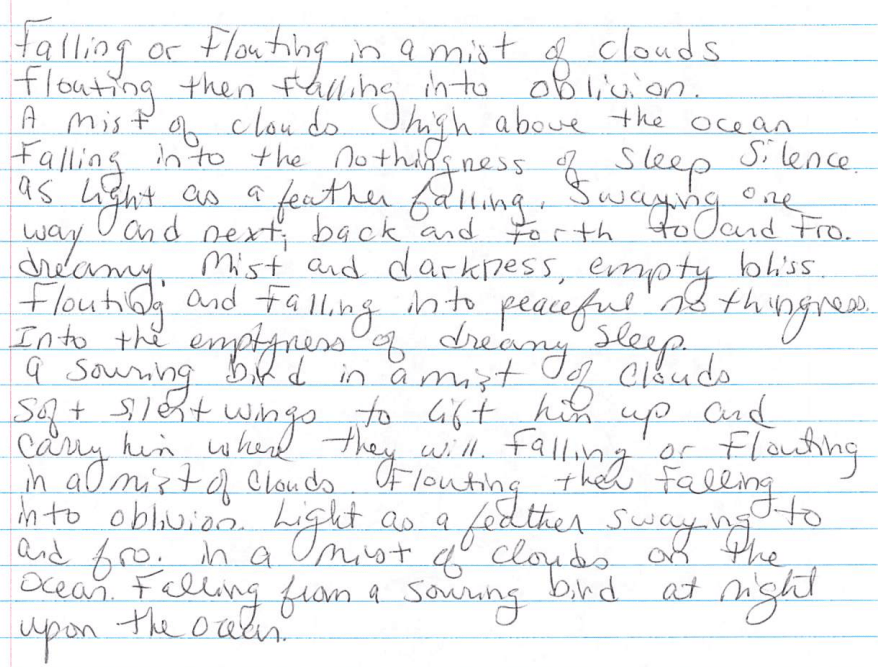 Falling or Flouting in a mist of clouds
flouting then falling into oblivion.
A mist of clouds high above the ocean
Falling into the nothingness of sleep Silence.
as light as a feather falling. Swaying one
way and next; back and forth to and Fro.
dreamy. Mist and darkness, empty bliss.
Flouting and Falling into peaceful nothingness.
Into the emptyness of dreamy sleep.
a souring bird in a mist of clouds
soft silent wings to lift him up and
carry him where they will. Falling or Flouting
in a mist of clouds. Flouting then Falling
into oblivion. Light as a feather swaying to
and fro. in a mist of clouds on the
ocean. Falling from a souring bird at night
upon the ocean.